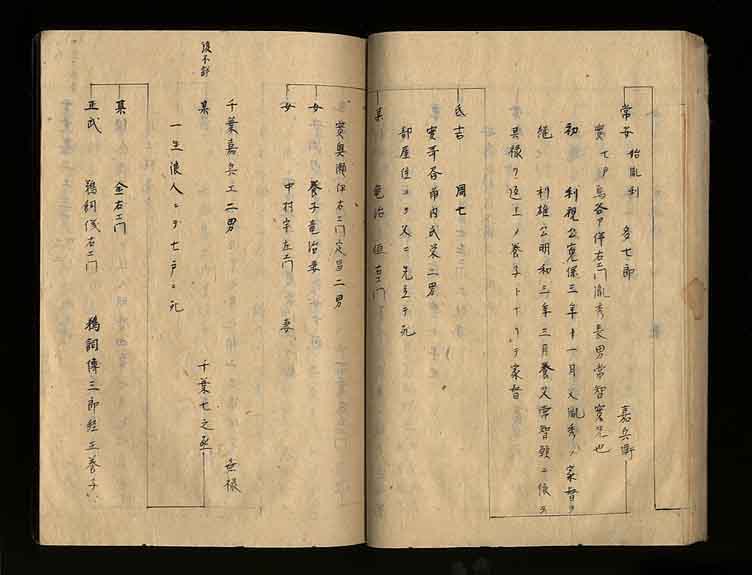 常安 始胤利 多七郎 嘉兵衛
実七戸 伴右エ門胤秀長男常智実兄也
初 利視公寛保三年十一月父胤秀ノ家督ヲ
継 利雄公明和三年三月養父常智願ニ依テ
其禄ヲ返上ノ養子トナリテ家督
氏吉 周七
実 市内武栄二男
部屋住ニテ父ニ先立テ死
某 竜治 恒右エ門
実奥瀬伊右エ門定昌二男
女 養子竜治妻
女 中村宗左エ門 妻
千葉嘉兵エ二男
某 千葉七之丞 無禄
後不詳
一生浪人ニテ七戸ニ死
某 金右エ門
正武 鵜飼儀右エ門 鵜飼傳三郎経正養子